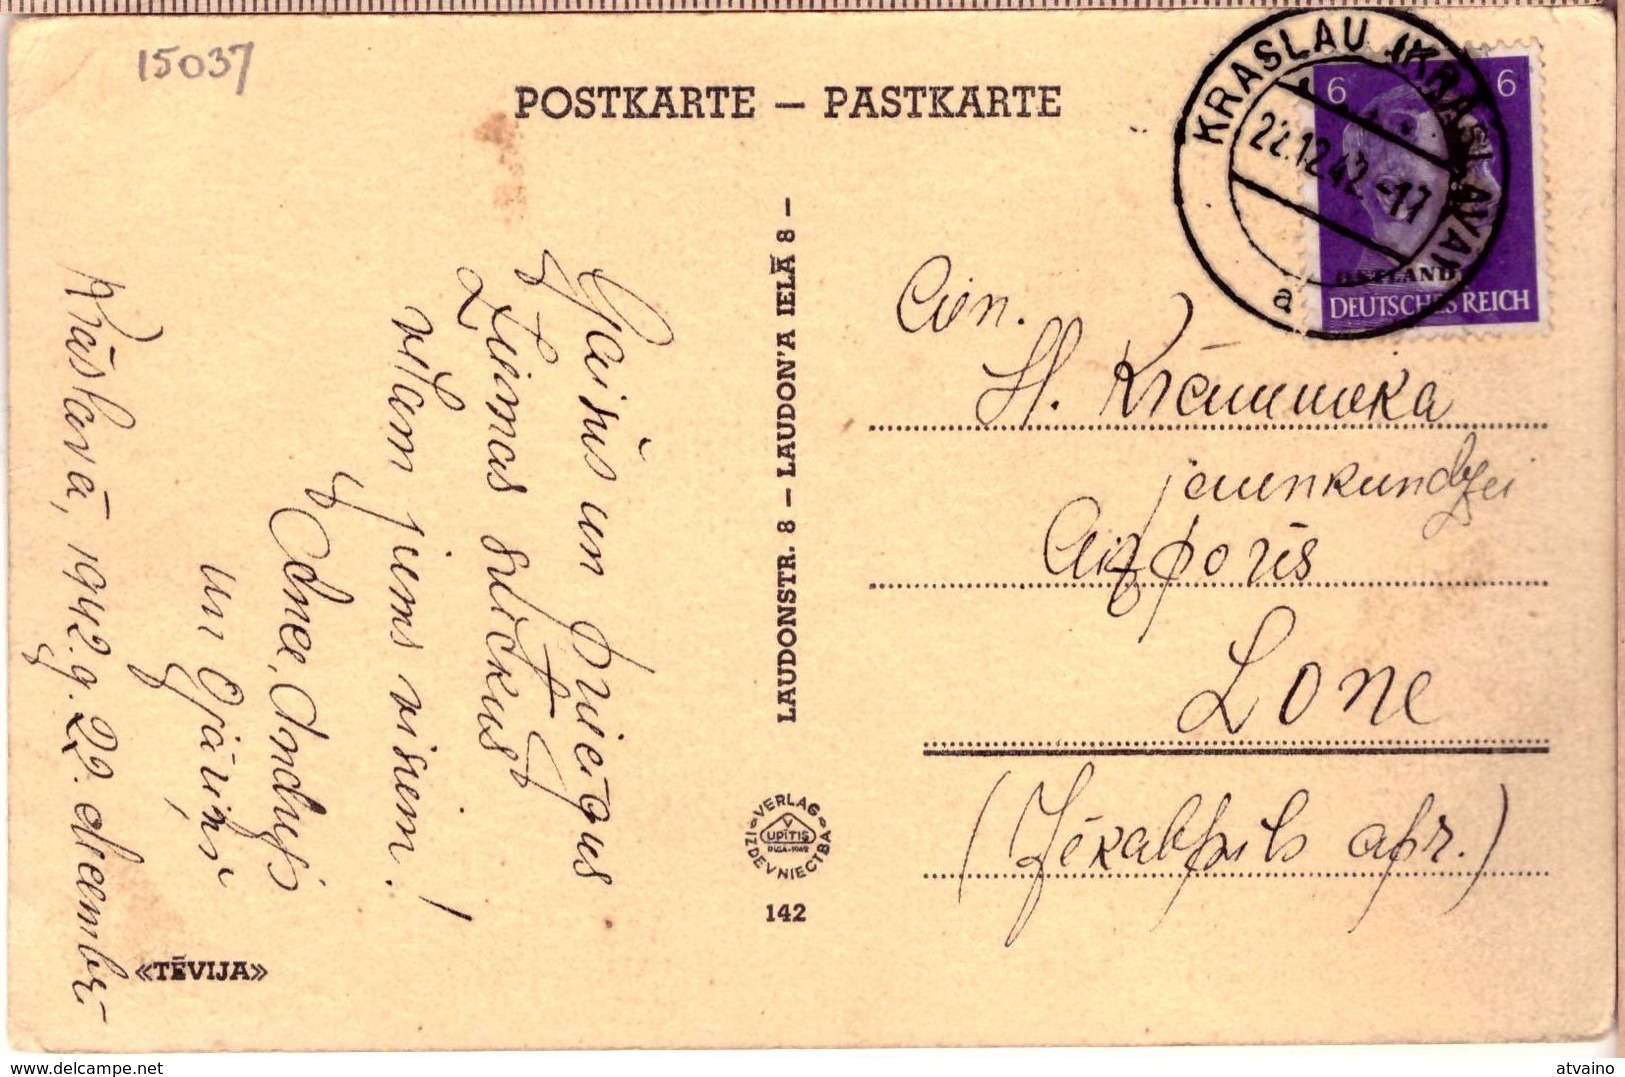 15037
POSTKARTE — PASTKARTE
KRASLAU (KRĀSLAVA)
22.12.42.-17
a
6 6
OSTLAND
DEUTSCHES REICH
Gaišus un priecīgus
Ziemas svētkus
vēlam jums visiem!
un
Krāslavā, 1942. g. 22. decembrī
«TĒVIJA»
LAUDONSTR. 8 — LAUDON'A IELĀ 8 —
VERLAG
V
UPĪTIS
RIGA-1942
IZDEVNIECĪBA
142
Cien.
jaunkundzei
Aizporūs
Lone
(Jēkabpils apr.)
atvaino